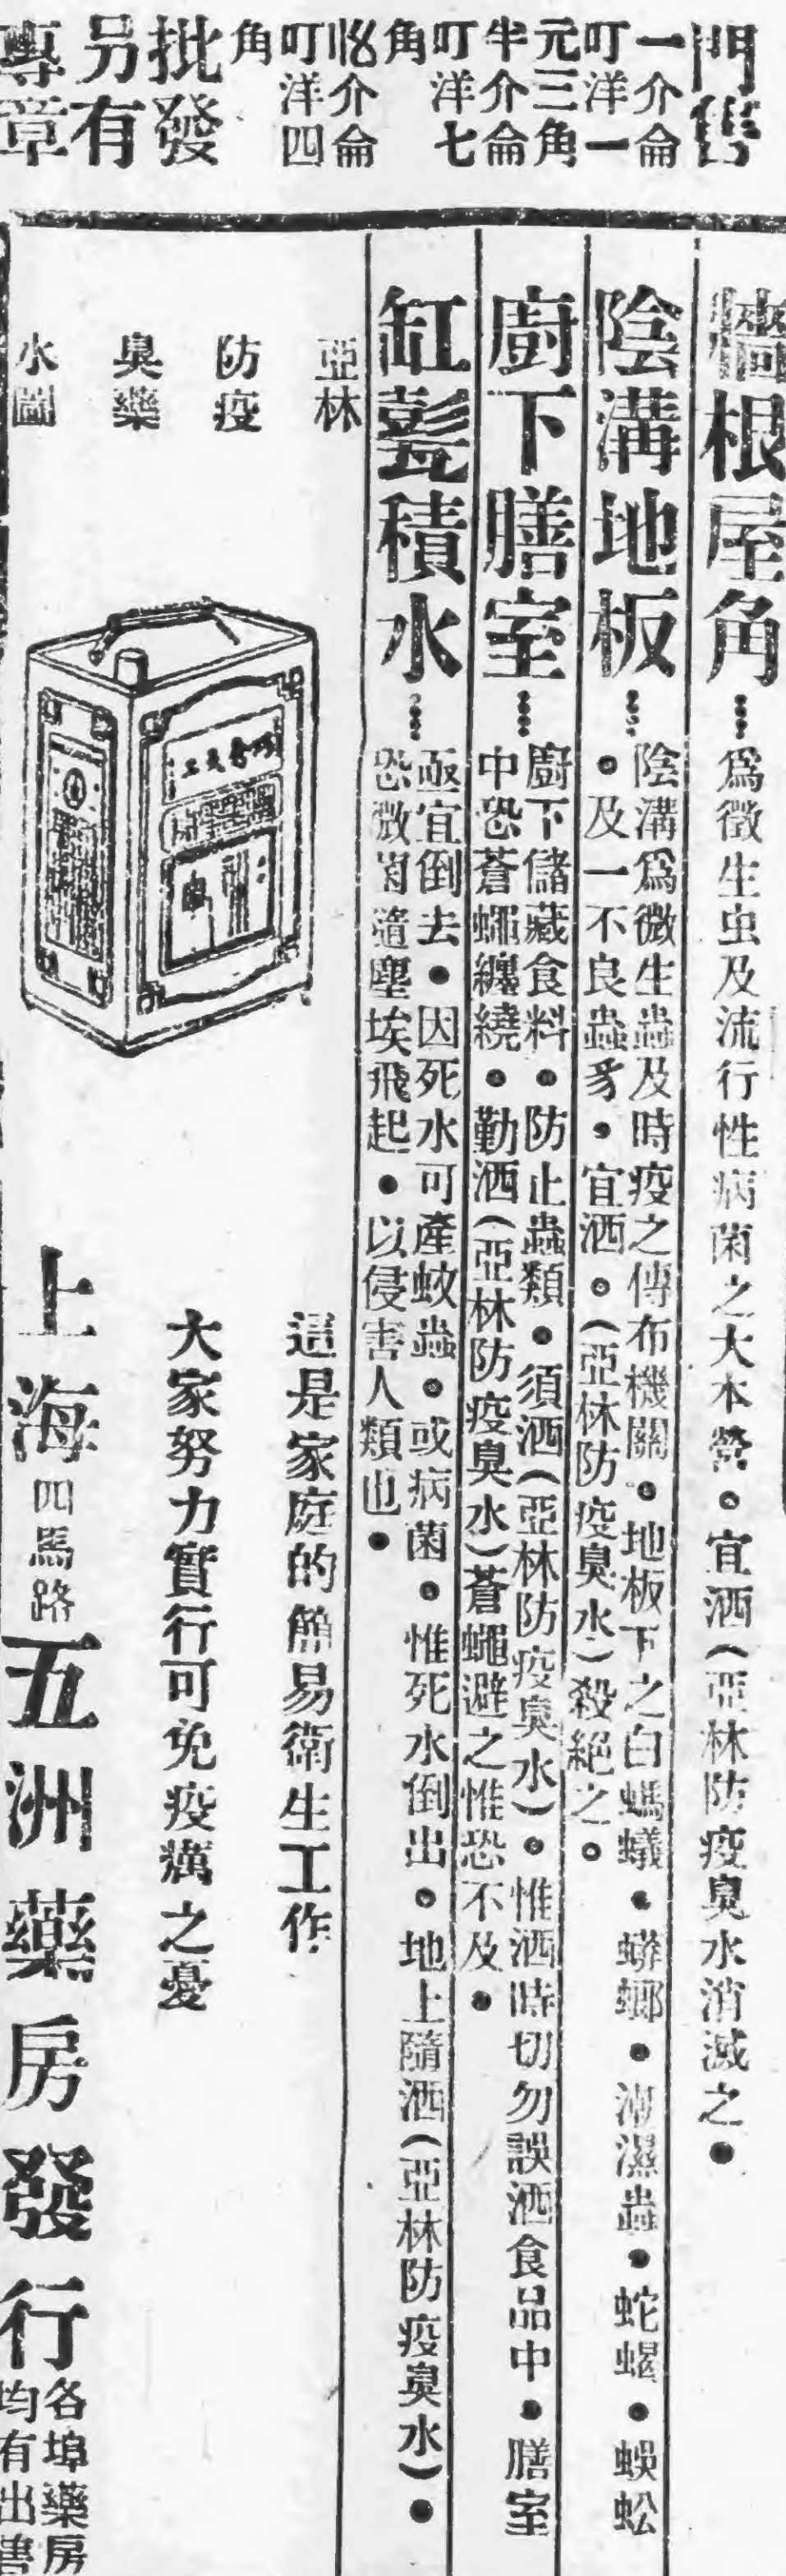 門售
一介侖
叮洋一
元三角
半介侖
叮洋七
角
介侖
叮洋四
角
批發
另有
專章
牆根屋角
為微生虫及流行性病菌之大本營。宜洒(亞林防疫臭水消滅之●
陰溝地板
陰溝為微生蟲及時疫之傳布機關。地板下之白螞蟻●蟒螂●潮濕蟲●蛇蝎●蜈蚣
●及一不良蟲豸●宜洒。(亞林防疫臭水)殺絕之。
廚下膳室
廚下儲藏食料●防止蟲類●須洒(亞林防疫臭水)。惟洒時切勿誤洒食品中●膳室
中恐蒼蠅纏繞●勤洒(亞林防疫臭水)蒼蠅避之惟恐不及●
缸甏積水
亟宜倒去●因死水可產蚊蟲。或病菌。惟死水倒出。地上隨洒(亞林防疫臭水)●
恐微菌隨塵埃飛起●以侵害人類也●
亞林
防疫
臭藥
水圖
這是家庭的簡易衛生工作
大家努力實行可免疫癘之憂
上海四馬路五洲藥房發行
各埠藥房
均有出售